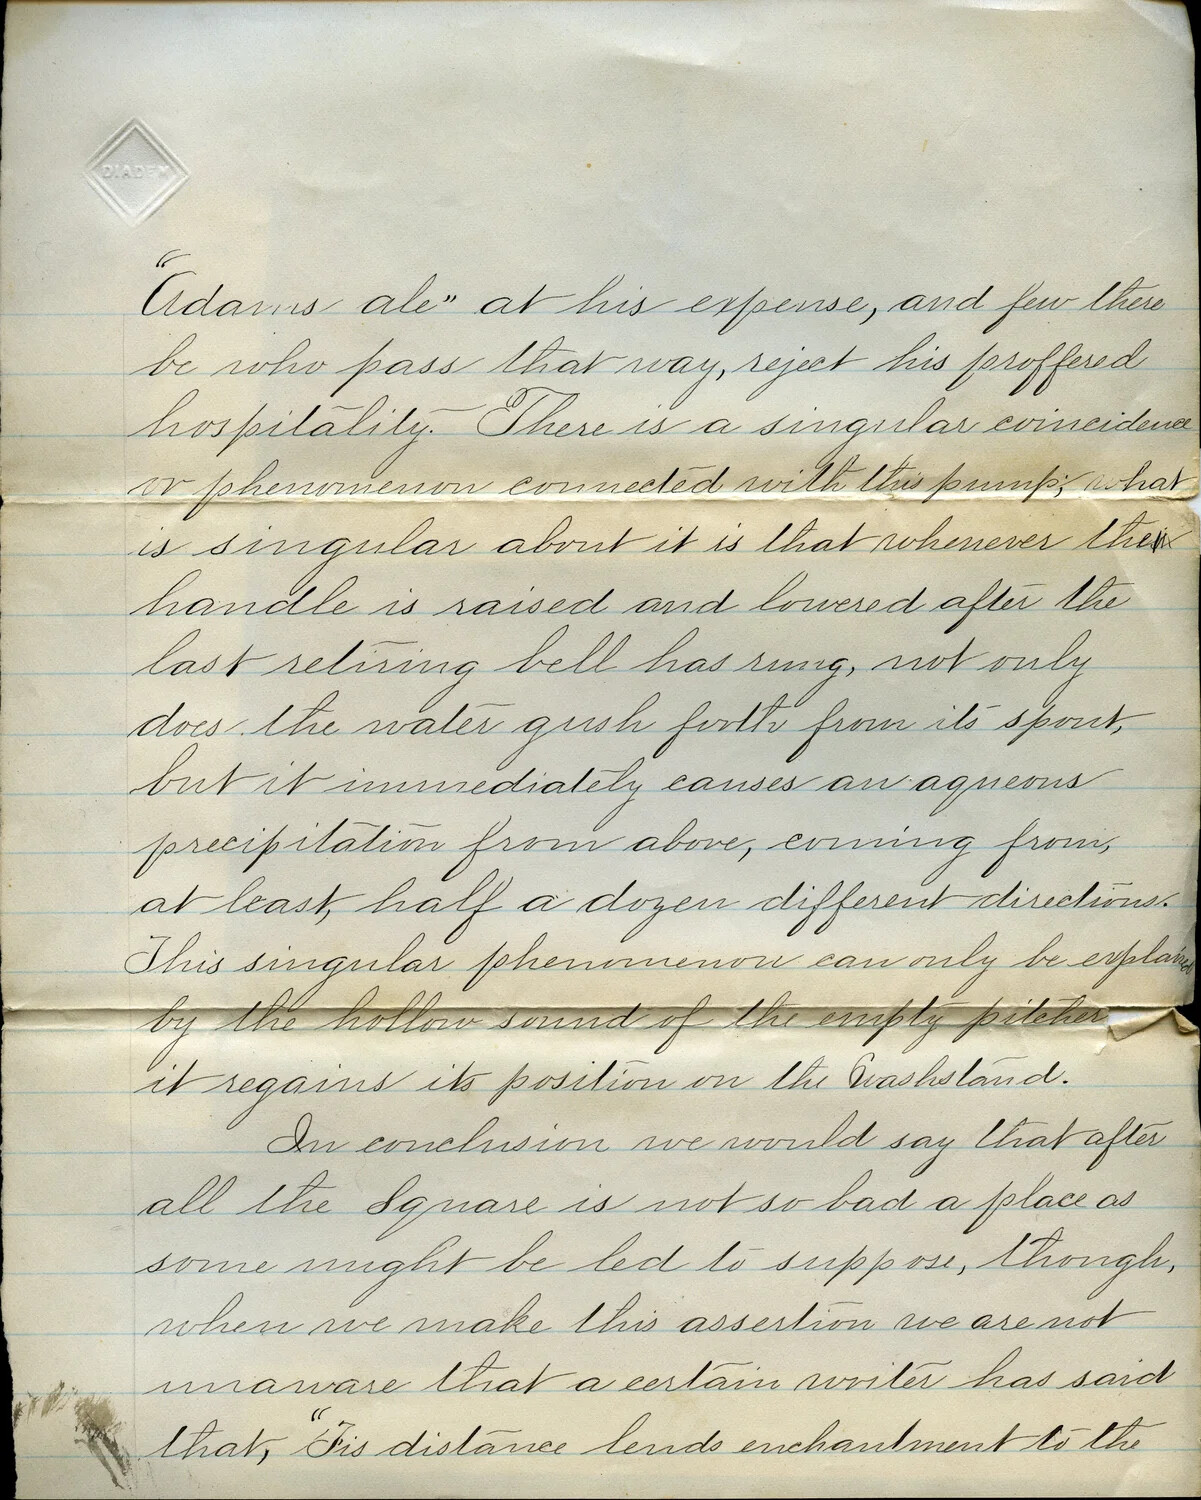 DIADEM
"Adams ale" at his expense, and few there
be who pass that way, reject his proffered
hospitality. There is a singular coincidence
or phenomenon connected with this pump; what
is singular about it is that whenever the
handle is raised and lowered after the
last retiring bell has rung, not only
does the water gush forth from its spout,
but it immediately causes an aqueous
precipitation from above, coming from,
at least, half a dozen different directions.
This singular phenomenon can only be explained
by the hollow sound of the empty pitcher
it regains its position on the Washstand.
In conclusion we would say that after
all the Square is not so bad a place as
some might be led to suppose, though,
when we make this assertion we are not
unaware that a certain writer has said
that, "Tis distance lends enchantment to the